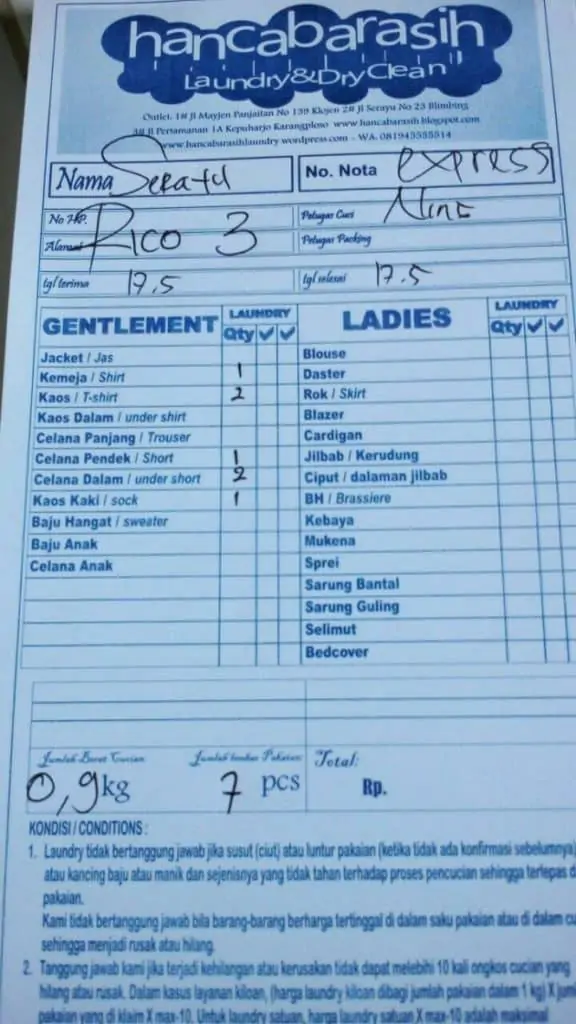 hancabarasih
Laundry&DryClean
Outlet. 1# Jl Mayjen Panjaitan No 139 Klojen 2# Jl Serayu No 23 Blimbing
3# Jl Pertamanan 1A Kepuharjo Karangploso www.hancabarasih.blogspot.com
www.hancabarasihlaundry.wordpress.com - WA. 081945555514
Nama No. Nota express
No HP. Petugas Cuci Nine
Alamat Rico 3 Petugas Packing
tgl terima 17.5 tgl selesai 17.5
GENTLEMENT LAUNDRY Qty LADIES LAUNDRY Qty
Jacket / Jas Blouse
Kemeja / Shirt 1 Daster
Kaos / T-shirt 2 Rok / Skirt
Kaos Dalam / under shirt Blazer
Celana Panjang / Trouser Cardigan
Celana Pendek / Short 1 Jilbab / Kerudung
Celana Dalam / under short 2 Ciput / dalaman jilbab
Kaos Kaki / sock 1 BH / Brassiere
Baju Hangat / sweater Kebaya
Baju Anak Mukena
Celana Anak Sprei
Sarung Bantal
Sarung Guling
Selimut
Bedcover
Jumlah Berat Cucian Jumlah Pakaian Total:
0,9 kg 7 pcs Rp.
KONDISI / CONDITIONS :
1. Laundry tidak bertanggung jawab jika susut (ciut) atau luntur pakaian (ketika tidak ada konfirmasi sebelumnya)
atau kancing baju atau manik dan sejenisnya yang tidak tahan terhadap proses pencucian sehingga terlepas
pakaian.
Kami tidak bertanggung jawab bila barang-barang berharga tertinggal di dalam saku pakaian atau di dalam
sehingga menjadi rusak atau hilang.
2. Tanggung jawab kami jika terjadi kehilangan atau kerusakan tidak dapat melebihi 10 kali ongkos cucian yang
hilang atau rusak. Dalam kasus layanan kiloan, (harga laundry kiloan dibagi jumlah pakaian dalam 1 kg) X
pakaian yang di klaim X max-10. Untuk laundry satuan, harga laundry satuan X max-10 adalah maksimal